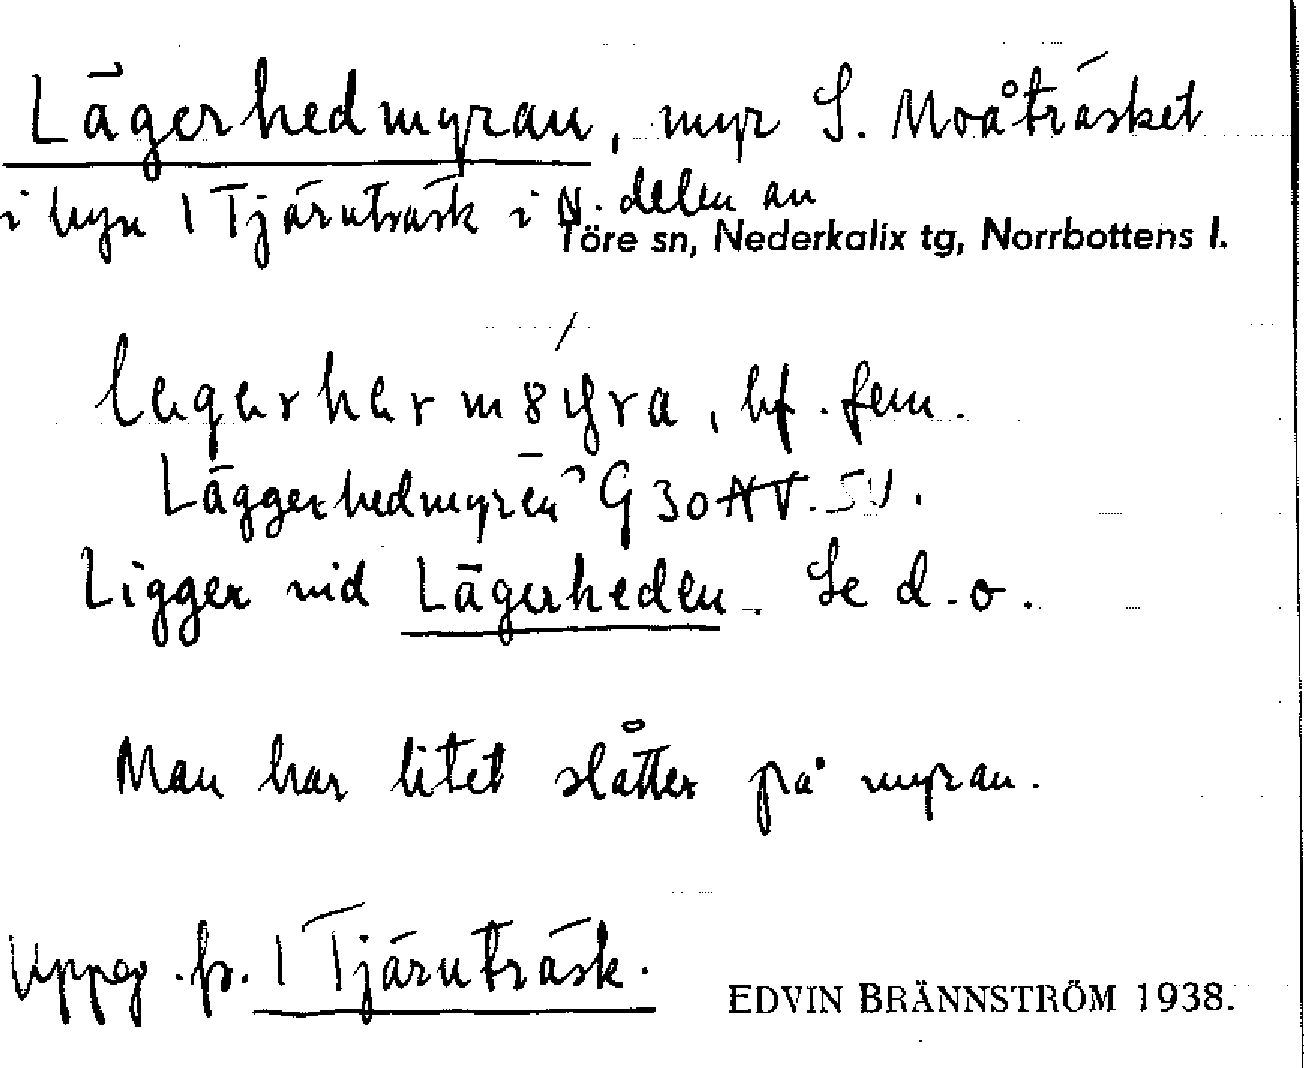 Lägerhedmyran, myr S. Moåträsket
i byn 1 Tjärnträsk i N. delen av
Töre sn, Nederkalix tg, Norrbottens l.
bf. fem.
Läggerhedmyren G 30
Ligger vid Lägerheden. Se d.o.
Man har litet slåtter på myran.
Uppg. fr. 1 Tjärnträsk.
EDVIN BRÄNNSTRÖM 1938.